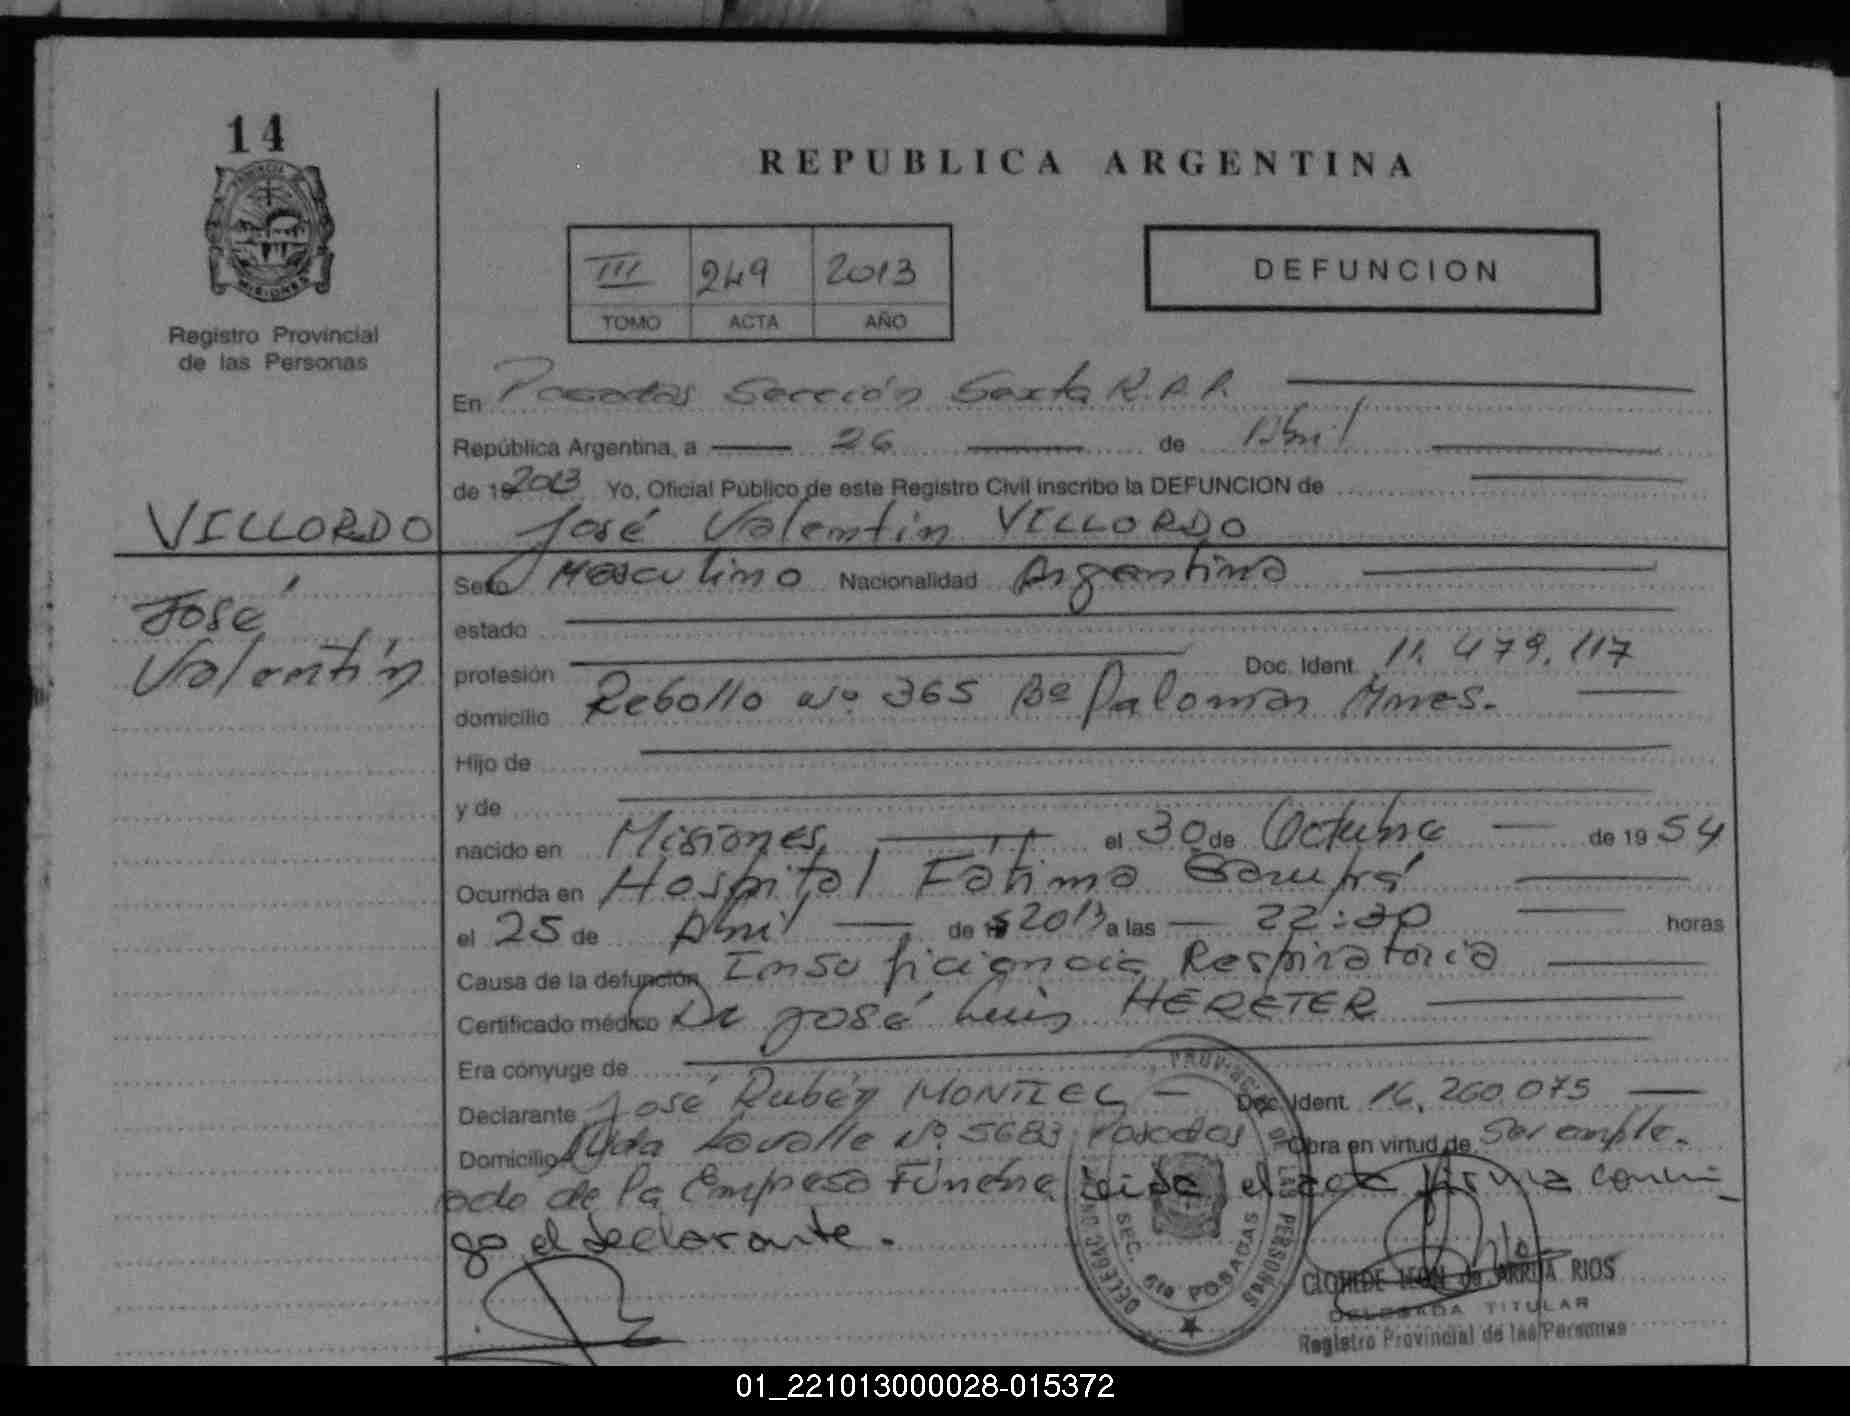 14
PROVINCIA
MISIONES
Registro Provincial
de las Personas
VILLORDO
José
Valentín
REPUBLICA ARGENTINA
III 249 2013
TOMO ACTA AÑO
DEFUNCION
En Posadas Sección Sexta R.P.P.
República Argentina, a 26 de Abril
de 19 2013 Yo, Oficial Público de este Registro Civil inscribo la DEFUNCION de
José Valentín VILLORDO
Sexo Masculino Nacionalidad Argentina
estado
profesión Doc. Ident. 11.479.117
domicilio Rebollo Nº 365 Bº Palomar Mnes.
Hijo de
y de
nacido en Misiones, el 30 de Octubre de 19 54
Ocurrida en Hospital Fátima Garupá
el 25 de Abril de 2013 a las 22:30 horas
Causa de la defunción Insuficiencia Respiratoria
Certificado médico Dr José Luis HERETER
Era cónyuge de
Declarante José Rubén MONTIEL Doc. Ident. 16.260.075
Domicilio Avda Lavalle Nº 5683 Posadas Obra en virtud de Ser emple-
ado de la Empresa Fúnebre Leida el acta firma conmi-
go el declarante.
PROVINCIAL DE LAS PERSONAS
DELEGAC
SEC. 6ta POSADAS
CLOTILDE LEON de ARRUA RIOS
DELEGADA TITULAR
Registro Provincial de las Personas
01_221013000028-015372